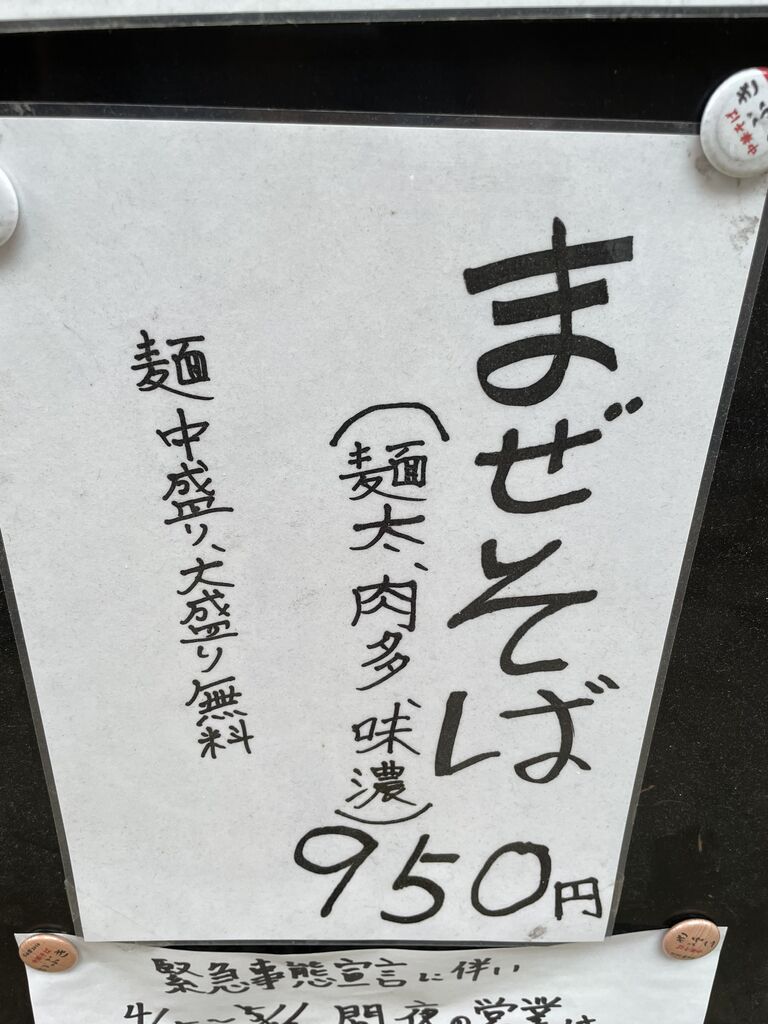 まぜそば
(麺太、肉多、味濃)
950円
麺 中盛り、大盛り無料
緊急事態宣言に伴い